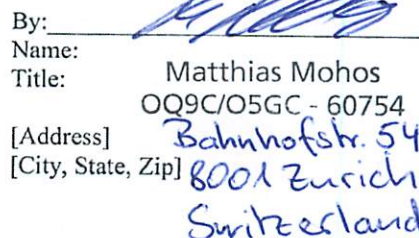 By:
Name:
Title: Matthias Mohos
OQ9C/O5GC - 60754
[Address] Bahnhofstr. 54
[City, State, Zip] 8001 Zurich
Switzerland